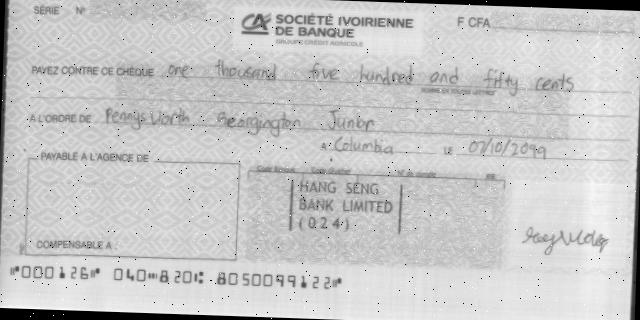 SÉRIE N°
SOCIÉTÉ IVOIRIENNE
DE BANQUE
GROUPE CRÉDIT AGRICOLE
F CFA
PAYEZ CONTRE CE CHÈQUE one thousand five hundred and fifty cents
A L'ORDRE DE Pennys Worth Georgington Junior
A Columbia LE 07/10/2099
PAYABLE A L'AGENCE DE
HANG SENG
BANK LIMITED
(024)
COMPENSABLE A :
⑈000126⑈ 040⑉820⑆ 8050099122⑈